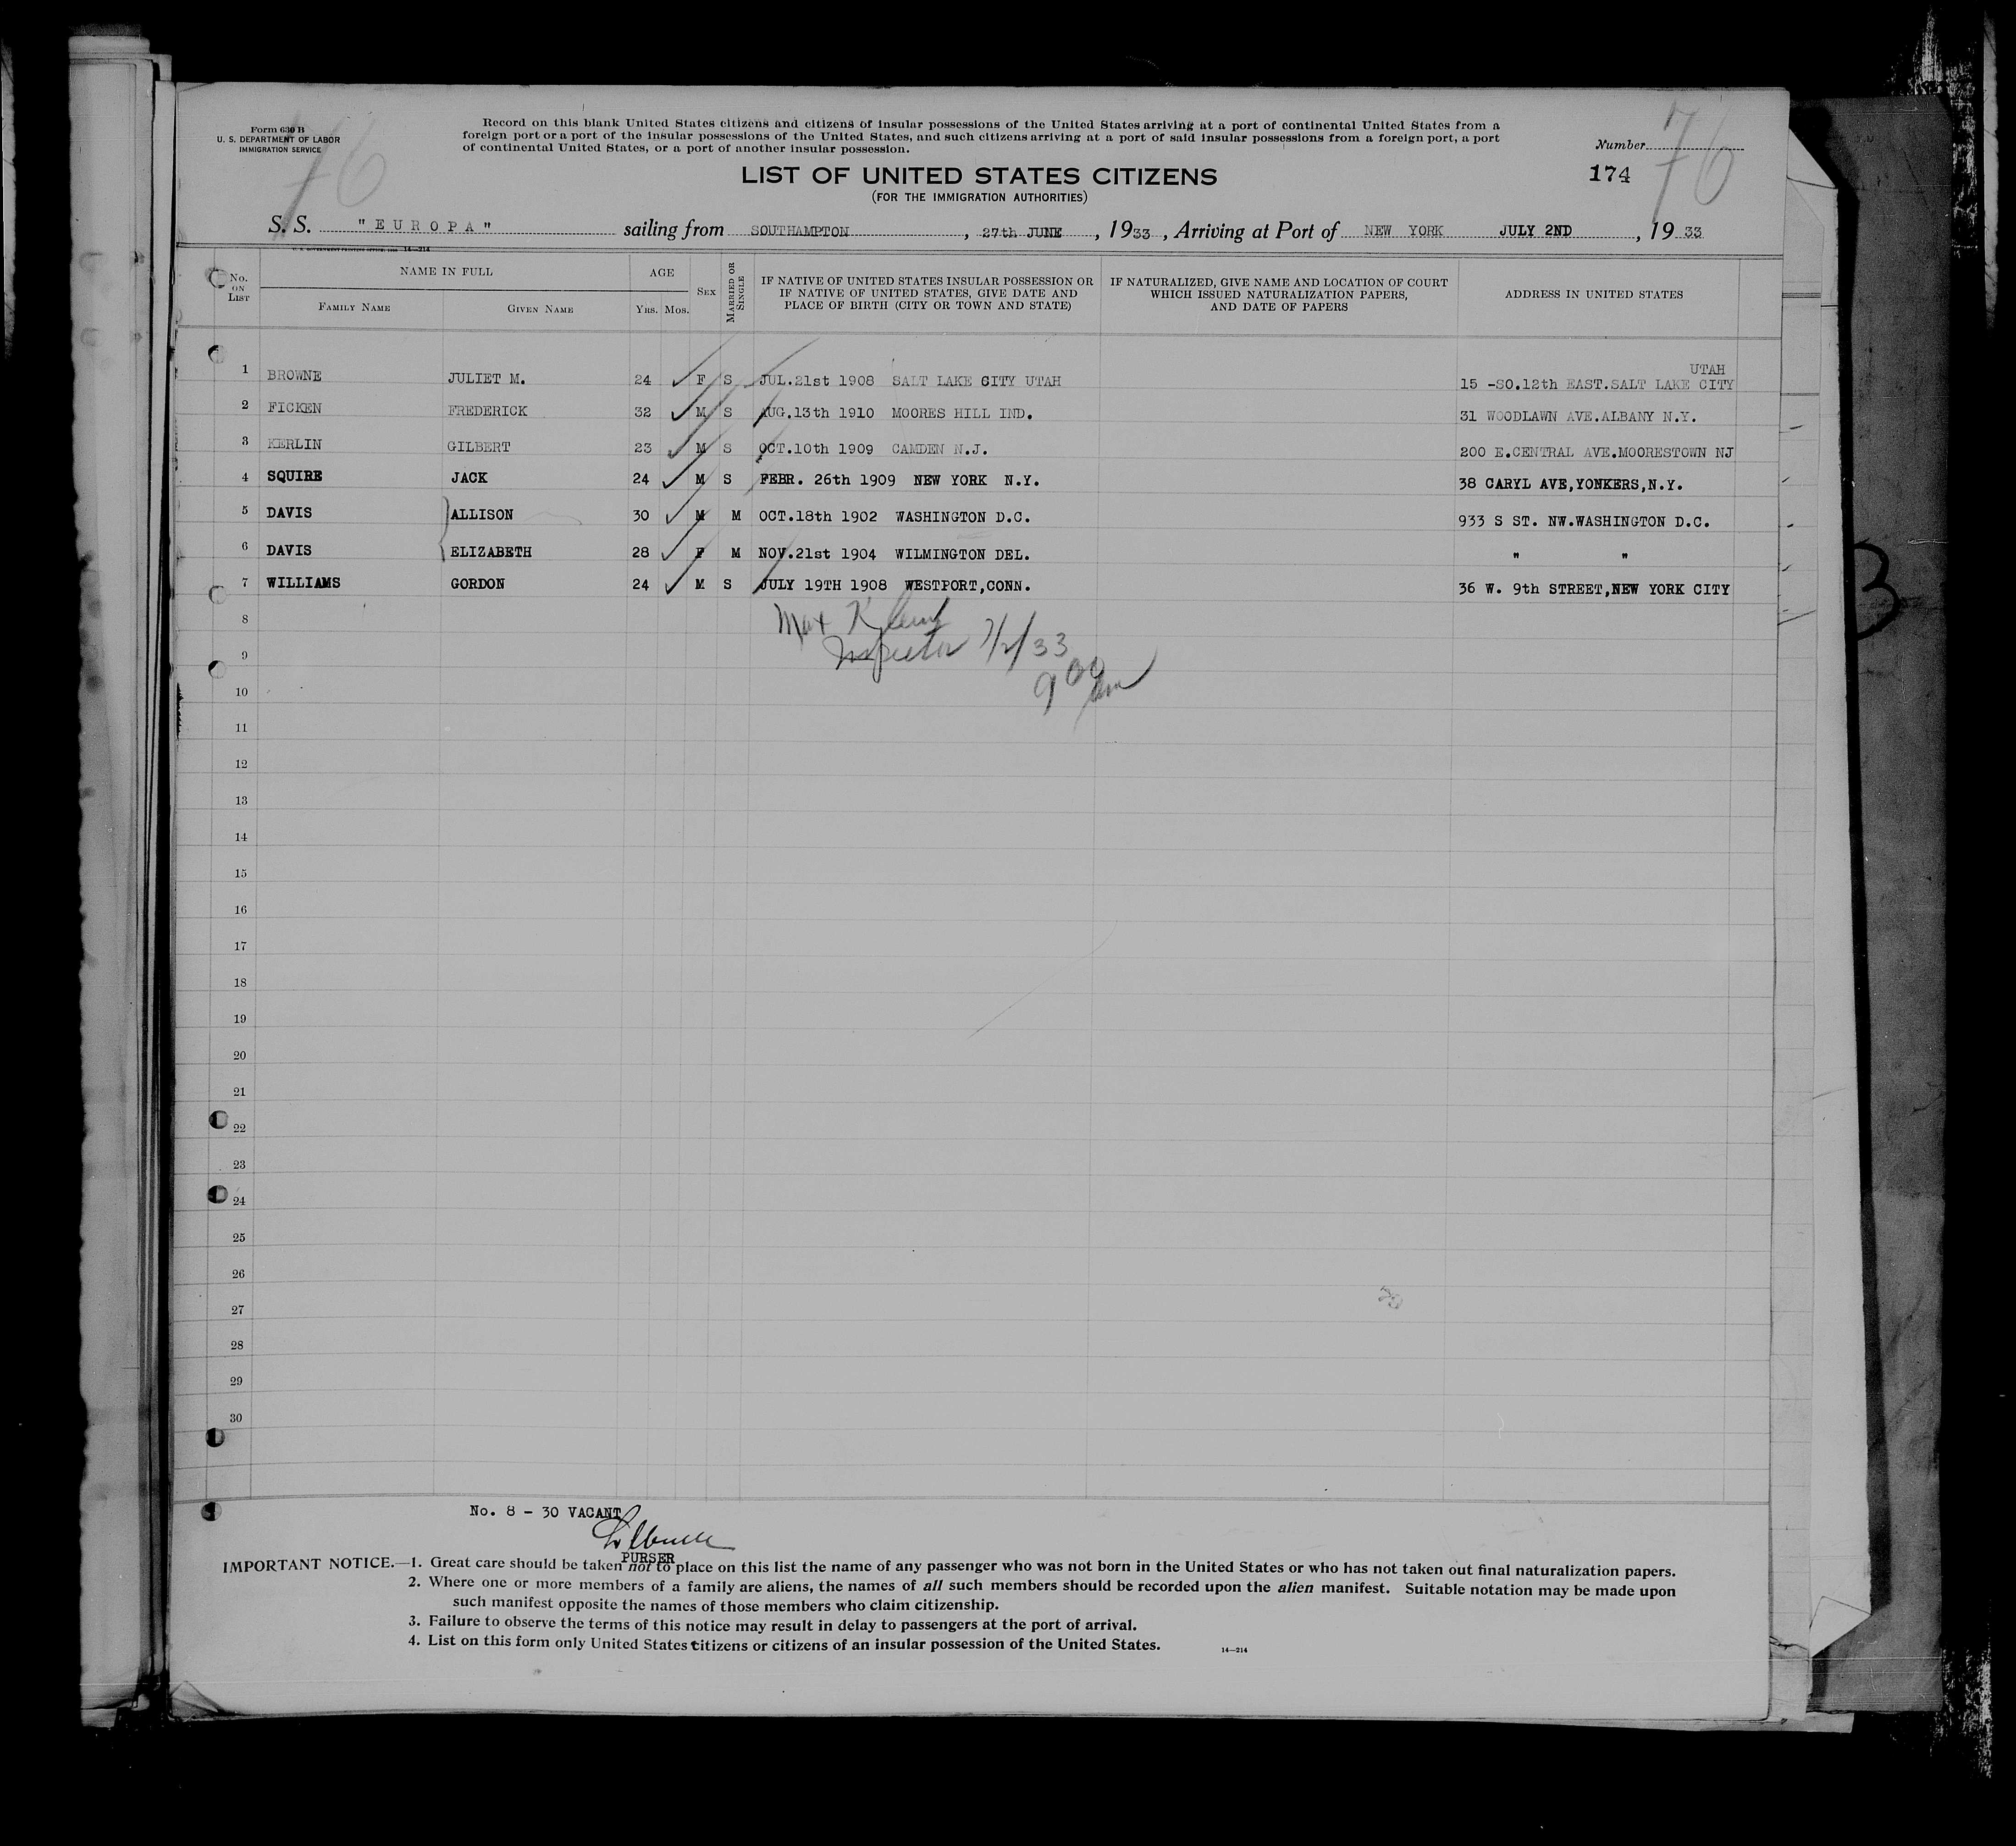 Form 630 B
U. S. DEPARTMENT OF LABOR
IMMIGRATION SERVICE
76
Record on this blank United States citizens and citizens of insular possessions of the United States arriving at a port of continental United States from a
foreign port or a port of the insular possessions of the United States, and such citizens arriving at a port of said insular possessions from a foreign port, a port
of continental United States, or a port of another insular possession.
Number
174
76
LIST OF UNITED STATES CITIZENS
(FOR THE IMMIGRATION AUTHORITIES)
S. S. "EUROPA" sailing from SOUTHAMPTON, 27th JUNE, 1933, Arriving at Port of NEW YORK JULY 2ND, 1933
14-214
No. ON LIST NAME IN FULL FAMILY NAME GIVEN NAME AGE YRS. MOS. SEX MARRIED OR SINGLE IF NATIVE OF UNITED STATES INSULAR POSSESSION OR IF NATIVE OF UNITED STATES, GIVE DATE AND PLACE OF BIRTH (CITY OR TOWN AND STATE) IF NATURALIZED, GIVE NAME AND LOCATION OF COURT WHICH ISSUED NATURALIZATION PAPERS, AND DATE OF PAPERS ADDRESS IN UNITED STATES
1 BROWNE JULIET M. 24 F S JUL.21st 1908 SALT LAKE CITY UTAH 15 -SO.12th EAST.SALT LAKE CITY UTAH
2 FICKEN FREDERICK 32 M S AUG.13th 1910 MOORES HILL IND. 31 WOODLAWN AVE.ALBANY N.Y.
3 KERLIN GILBERT 23 M S OCT.10th 1909 CAMDEN N.J. 200 E.CENTRAL AVE.MOORESTOWN NJ
4 SQUIRE JACK 24 M S FEBR. 26th 1909 NEW YORK N.Y. 38 CARYL AVE,YONKERS,N.Y.
5 DAVIS ALLISON 30 M M OCT.18th 1902 WASHINGTON D.C. 933 S ST. NW.WASHINGTON D.C.
6 DAVIS ELIZABETH 28 F M NOV.21st 1904 WILMINGTON DEL. " "
7 WILLIAMS GORDON 24 M S JULY 19TH 1908 WESTPORT,CONN. 36 W. 9th STREET,NEW YORK CITY
8
Max
9 Inspector 7/2/33
10 9 00 am
11
12
13
14
15
16
17
18
19
20
21
22
23
24
25
26
27
28
29
30
No. 8 - 30 VACANT
PURSER
IMPORTANT NOTICE.—1. Great care should be taken not to place on this list the name of any passenger who was not born in the United States or who has not taken out final naturalization papers.
2. Where one or more members of a family are aliens, the names of all such members should be recorded upon the alien manifest. Suitable notation may be made upon
such manifest opposite the names of those members who claim citizenship.
3. Failure to observe the terms of this notice may result in delay to passengers at the port of arrival.
4. List on this form only United States citizens or citizens of an insular possession of the United States.
14—214
3